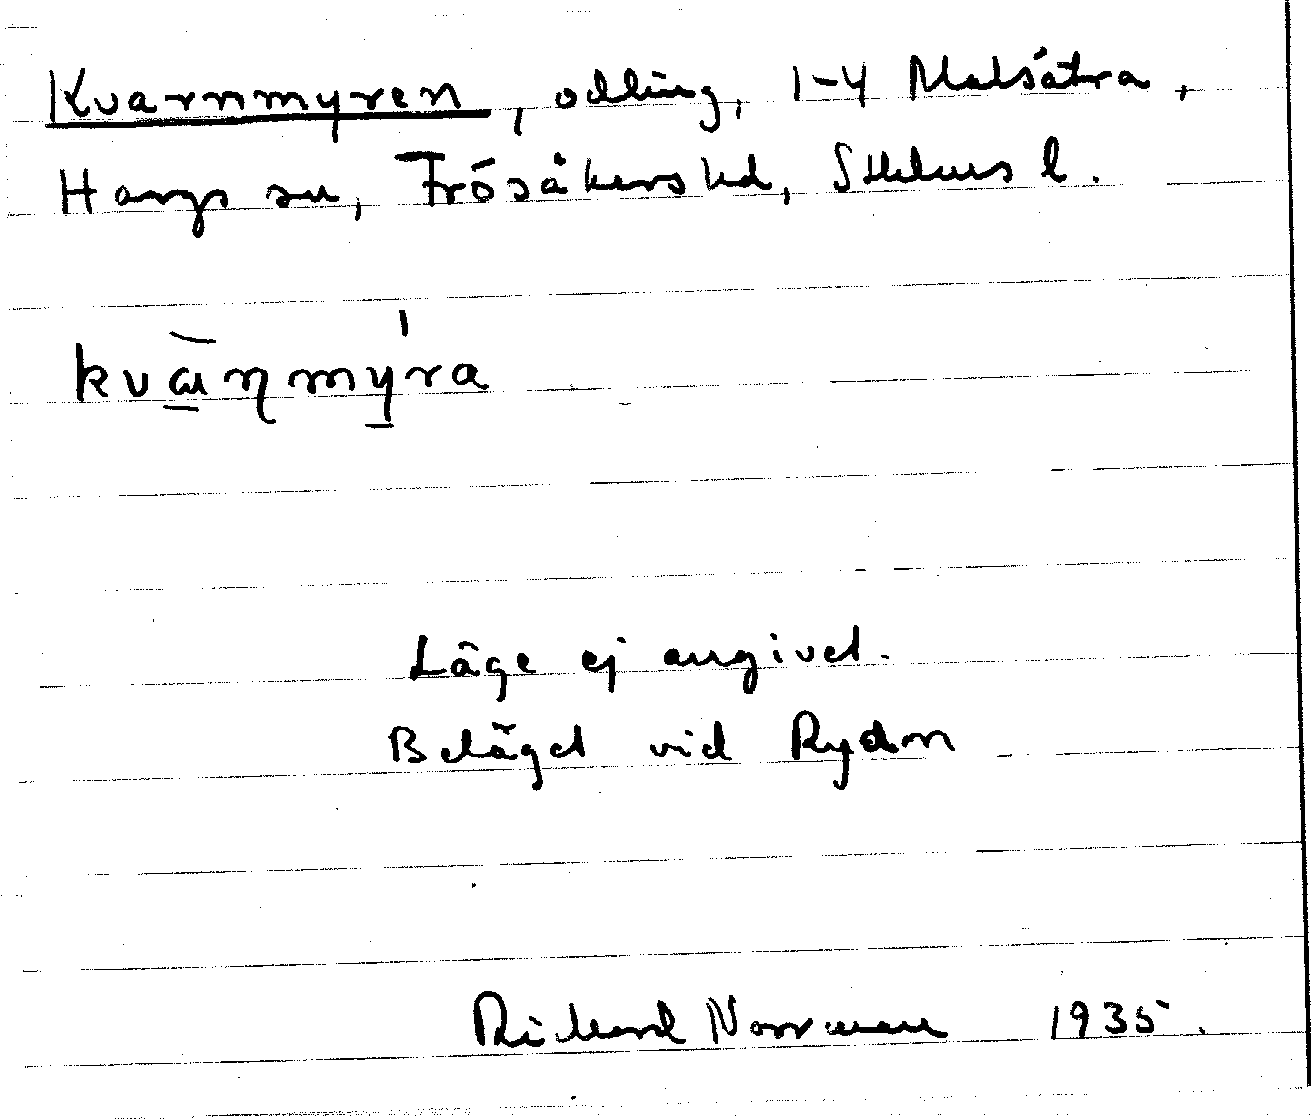 Kvarnmyren, odling, 1-4 Malsätra,
Hargs sn, Frösåkers hd, Sthlms l.
kva̲ŋmy̲ra
Läge ej angivet.
Beläget vid Rydm
Rickard Norrman 1935.